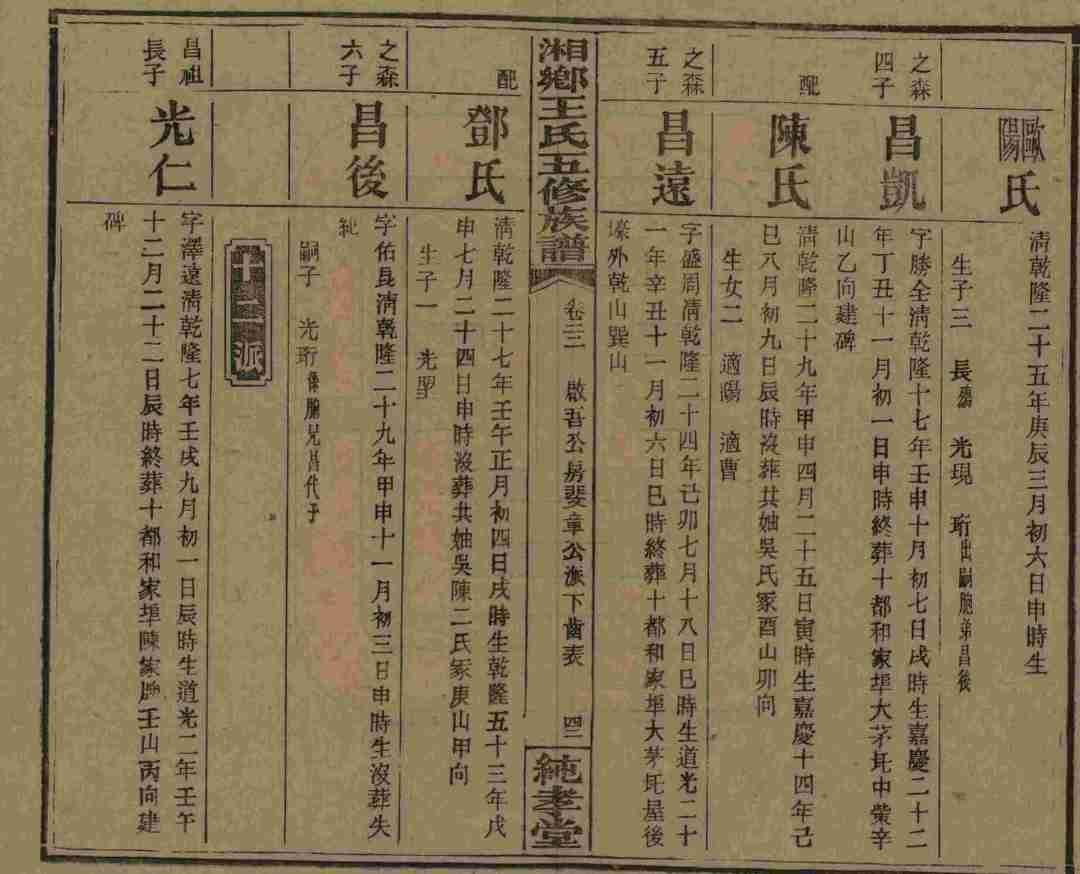 歐陽氏
清乾隆二十五年庚辰三月初六日申時生
生子三 長殤 光現 珩出嗣胞弟昌後
之森四子
昌凱
字勝全清乾隆十七年壬申十月初七日戌時生嘉慶二十二
年丁丑十一月初一日申時終葬十都和家埠大茅坵中榮辛
山乙向建碑
配
陳氏
清乾隆二十九年甲申四月二十五日寅時生嘉慶十四年己
巳八月初九日辰時沒葬共妯吳氏冢酉山卯向
生女二 適湯 適曹
之森五子
昌遠
字盛周清乾隆二十四年己卯七月十八日巳時生道光二十
一年辛丑十一月初六日巳時終葬十都和家埠大茅坵屋後
壕外乾山巽山
湘鄉王氏五修族譜
卷三二 啟吾公房斐章公派下齒表 四二
純孝堂
配
鄧氏
清乾隆二十七年壬午正月初四日戌時生乾隆五十三年戊
申七月二十四日申時沒葬共妯吳陳二氏冢庚山甲向
生子一 光聖
之森六子
昌後
字佑良清乾隆二十九年甲申十一月初三日申時生沒葬失
紀
嗣子 光珩係胞兄昌代子
派
昌祖長子
光仁
字澤遠清乾隆七年壬戌九月初一日辰時生道光二年壬午
十二月二十二日辰時終葬十都和家埠陳家壬山丙向建
碑